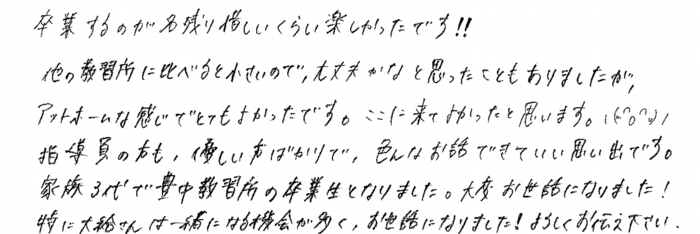 卒業するのが名残り惜しいくらい楽しかったです!!
他の教習所に比べると小さいので、大丈夫かなと思ったこともありましたが、
アットホームな感じでとてもよかったです。ここに来てよかったと思います。(^o^)/
指導員の方も、優しい方ばかりで、色んなお話できていい思い出です。
家族3代で豊中教習所の卒業生となりました。大変お世話になりました!
特に大さんは一緒になる機会が多く、お世話になりました!よろしくお伝え下さい。